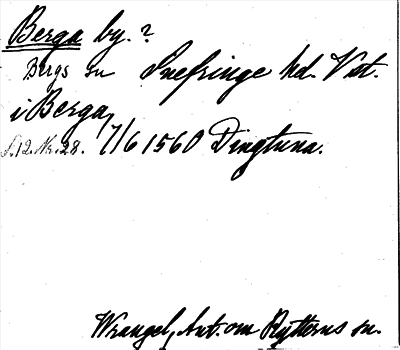 Berga by. ?
Bergs sn Snefringe hd. Vstm.
i Berga,
s. 12. Nr. 28. 7/6 1560 Dingtuna.
Wrangel, Ant. om Rytterns sn.